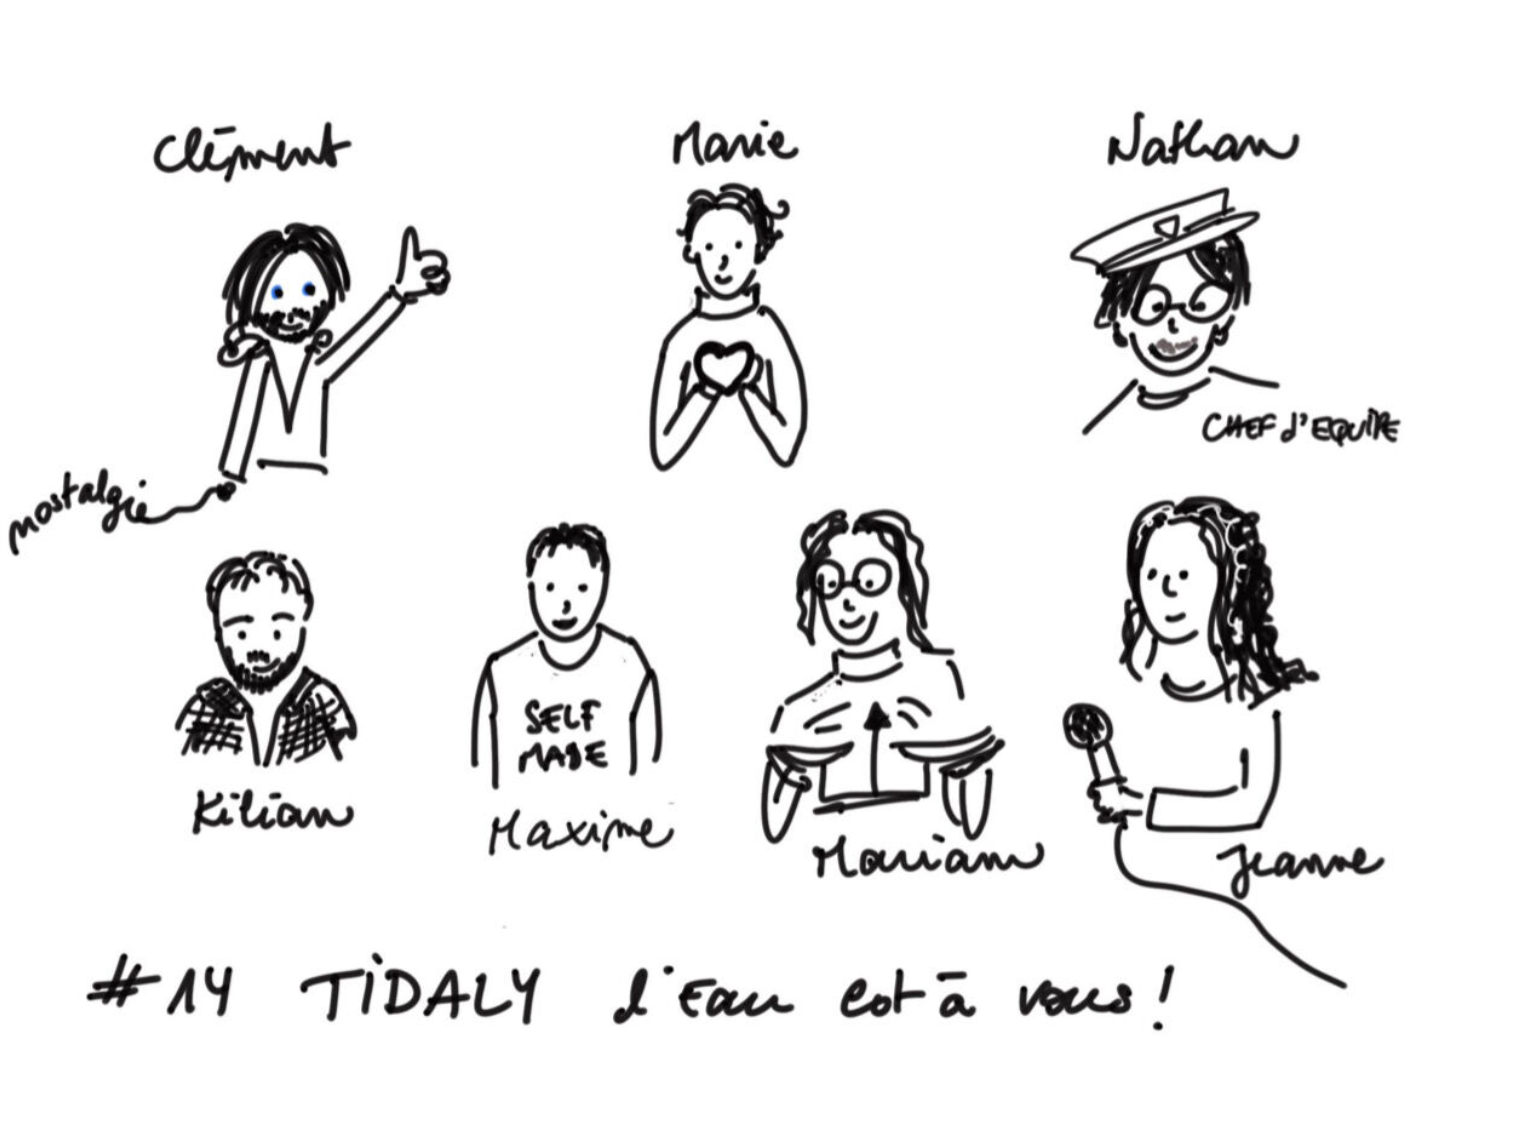 Clément
Marie
Nathan
CHEF d'EQUIPE
nostalgie
SELF
MADE
Kilian
Maxime
Mariam
Jeanne
#14 TIDALY l'Eau est à vous!